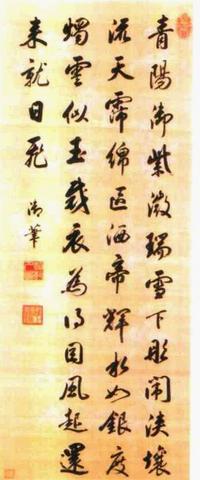 青陽御紫微瑞雪下彤闈浹壤
流天霈綿區洒帝輝水如銀度
燭雲似玉裁衣為得因風起還
來就日飛 御筆